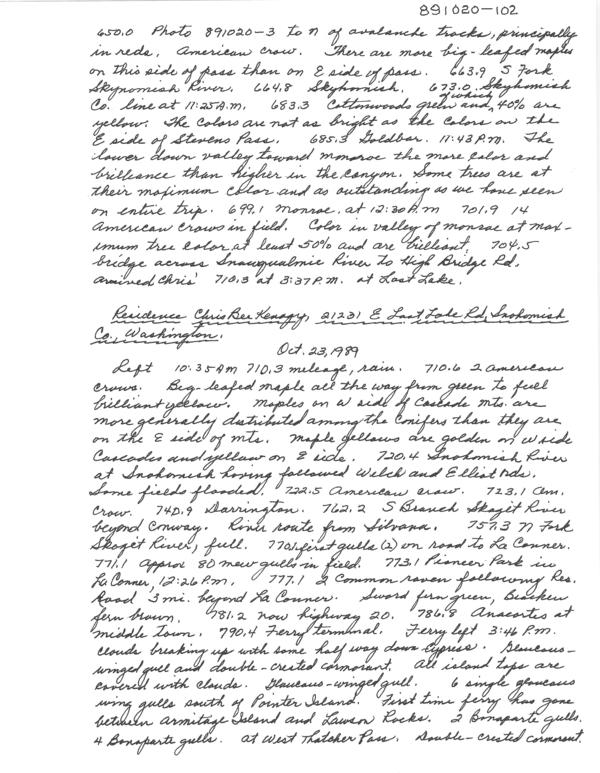 891020-102
650.0 Photo 891020-3 to N of avalanche tracks, principally
in reds, American crow. There are more big-leafed maples
on this side of pass than on E side of pass. 663.9 S Fork
Skynomish River. 664.8 Skyhomish. 673.0 Skyhomish
Co. line at 11:25 A.m. 683.3 Cottonwoods green and, of which 40% are
yellow. The colors are not as bright as the colors on the
E side of Stevens Pass. 685.3 Goldbar. 11:43 P.M. The
lower down valley toward monroe the more color and
brilleance than higher in the canyon. Some trees are at
their maximum color and as outstanding as we have seen
on entire trip. 699.1 Monroe, at 12:30 P.m 701.9 14
American crows in field. Color in valley of monroe at max-
imum tree color at least 50% and are brilliant. 704.5
bridge across Snawqualmie River to High Bridge Rd.
arrived Chris' 710.3 at 3:37 P.M. at Lost Lake.
Residence Chris Bee Kenagy, 21231 E Lost Lake Rd, Snohomish
Co., Washington.
Oct. 23, 1989
Left 10:35 AM 710.3 mileage, rain. 710.6 2 american
crows. Big-leafed maple all the way from green to full
brilliant yellow. Maples on W side of Cascade Mts. are
more generally distributed among the conifers than they are
on the E side of mts. Maple yellows are golden on W side
Cascades and yellow on E side. 720.4 Snohomish River
at Snohomish having followed Welch and Elliot rds.
Some fields flooded. 722.5 American crow. 723.1 Am.
crow. 740.9 Darrington. 762.2 S Branch Skagit River
beyond Conway. River route from Silvana. 757.3 N Fork
Skagit River, full. 770.1 first gulls (2) on road to La Conner.
771.1 Approx 80 mew gulls in field. 773.1 Pioneer Park in
La Conner, 12:26 P.m. 777.1 2 Common raven following Res.
Road 3 mi. beyond La Conner. Sword fern green, Bracken
fern brown. 781.2 now highway 20. 786.8 Anacortes at
middle town. 790.4 Ferry terminal. Ferry left 3:46 P.m.
clouds breaking up with some half way down Cypress. Glaucous-
winged gull and double-crested cormorant. All island tops are
covered with clouds. Glaucous-winged gull. 6 single glaucous
wing gulls south of Pointer Island. First time ferry has gone
between Armitage Island and Lawson Rocks. 2 Bonaparte gulls.
4 Bonaparte gulls. at West Thatcher Pass. Double-crested cormorant.